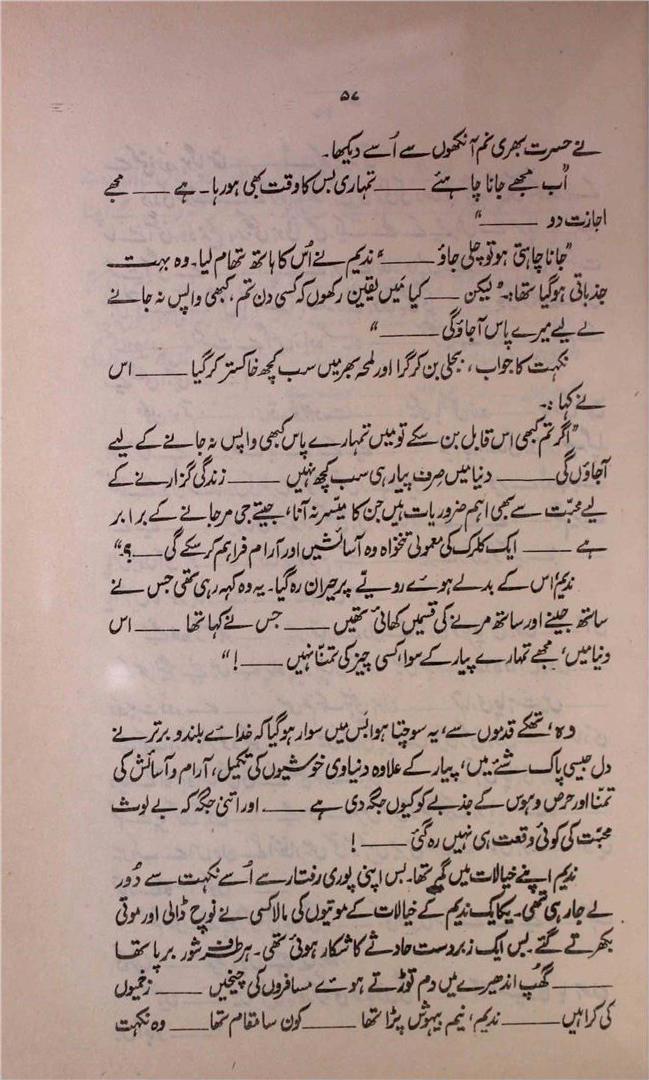 ۵۷
نے حسرت بھری نم آنکھوں سے اُسے دیکھا۔
"اَب مجھے جانا چاہئے ـــــــ تمہاری بس کا وقت بھی ہو رہا۔ ہے ـــــــ مجھے
اجازت دو ـــــــ"
"جانا چاہتی ہو تو چلی جاؤ ـــــــ" ندیم نے اُس کا ہاتھ تھام لیا۔ وہ بہت
جذباتی ہو گیا تھا:۔ "لیکن ـــــــ کیا مَیں یقین رکھوں کہ کسی دن تم، کبھی واپس نہ جانے
کے لیے میرے پاس آجاؤ گی ـــــــ"
نکہت کا جواب، بجلی بن کر گرا اور لمحہ بھر میں سب کچھ خاکستر کر گیا ـــــــ اس
نے کہا:۔
"اگر تم کبھی اس قابل بن سکے تو میں تمہارے پاس کبھی واپس نہ جانے کے لیے
آجاؤں گی ـــــــ دنیا میں صِرف پیار ہی سب کچھ نہیں ـــــــ زندگی گزارنے کے
لیے محبّت سے بھی اہم ضروریات ہیں جن کا میسّر نہ آنا، جیتے جی مر جانے کے برابر
ہے ـــــــ ایک کلرک کی معمولی تنخواہ وہ آسائشیں اور آرام فراہم کر سکے گی ـــــــ؟"
ندیم اس کے بدلے ہوئے رویّے پر حیران رہ گیا۔ یہ وہ کہہ رہی تھی جس نے
ساتھ جینے اور ساتھ مرنے کی قسمیں کھائی تھیں ـــــــ جس نے کہا تھا ـــــــ اس
دنیا میں، مجھے تمہارے پیار کے سوا، کسی چیز کی تمنّا نہیں ـــــــ!"
وہ، تھکے قدموں سے، یہ سوچتا ہوا بَس میں سوار ہو گیا کہ خدائے بلند و برتر نے
دل جیسی پاک شئے میں، پیار کے علاوہ دنیاوی خوشیوں کی تکمیل، آرام و آسائش کی
تمنّا اور حرص و ہوس کے جذبے کو کیوں جگہ دی ہے ـــــــ اور اتنی جگہ کہ بے لوث
محبّت کی کوئی وقعت ہی نہیں رہ گئی ـــــــ!
ندیم اپنے خیالات میں گم تھا۔ بس اپنی پوری رفتار سے اُسے نکہت سے دُور
لے جا رہی تھی۔ یکایک ندیم کے خیالات کے موتیوں کی مالا کسی نے نوچ ڈالی اور موتی
بکھرتے گئے۔ بس ایک زبردست حادثے کا شکار ہوئی تھی۔ ہر طرف شور برپا تھا
ـــــــ گھپ اندھیرے میں دم توڑتے ہوئے مسافروں کی چیخیں ـــــــ زخمیوں
کی کراہیں ـــــــ ندیم، نیم بیہوش پڑا تھا ـــــــ کون سا مقام تھا ـــــــ وہ نکہت